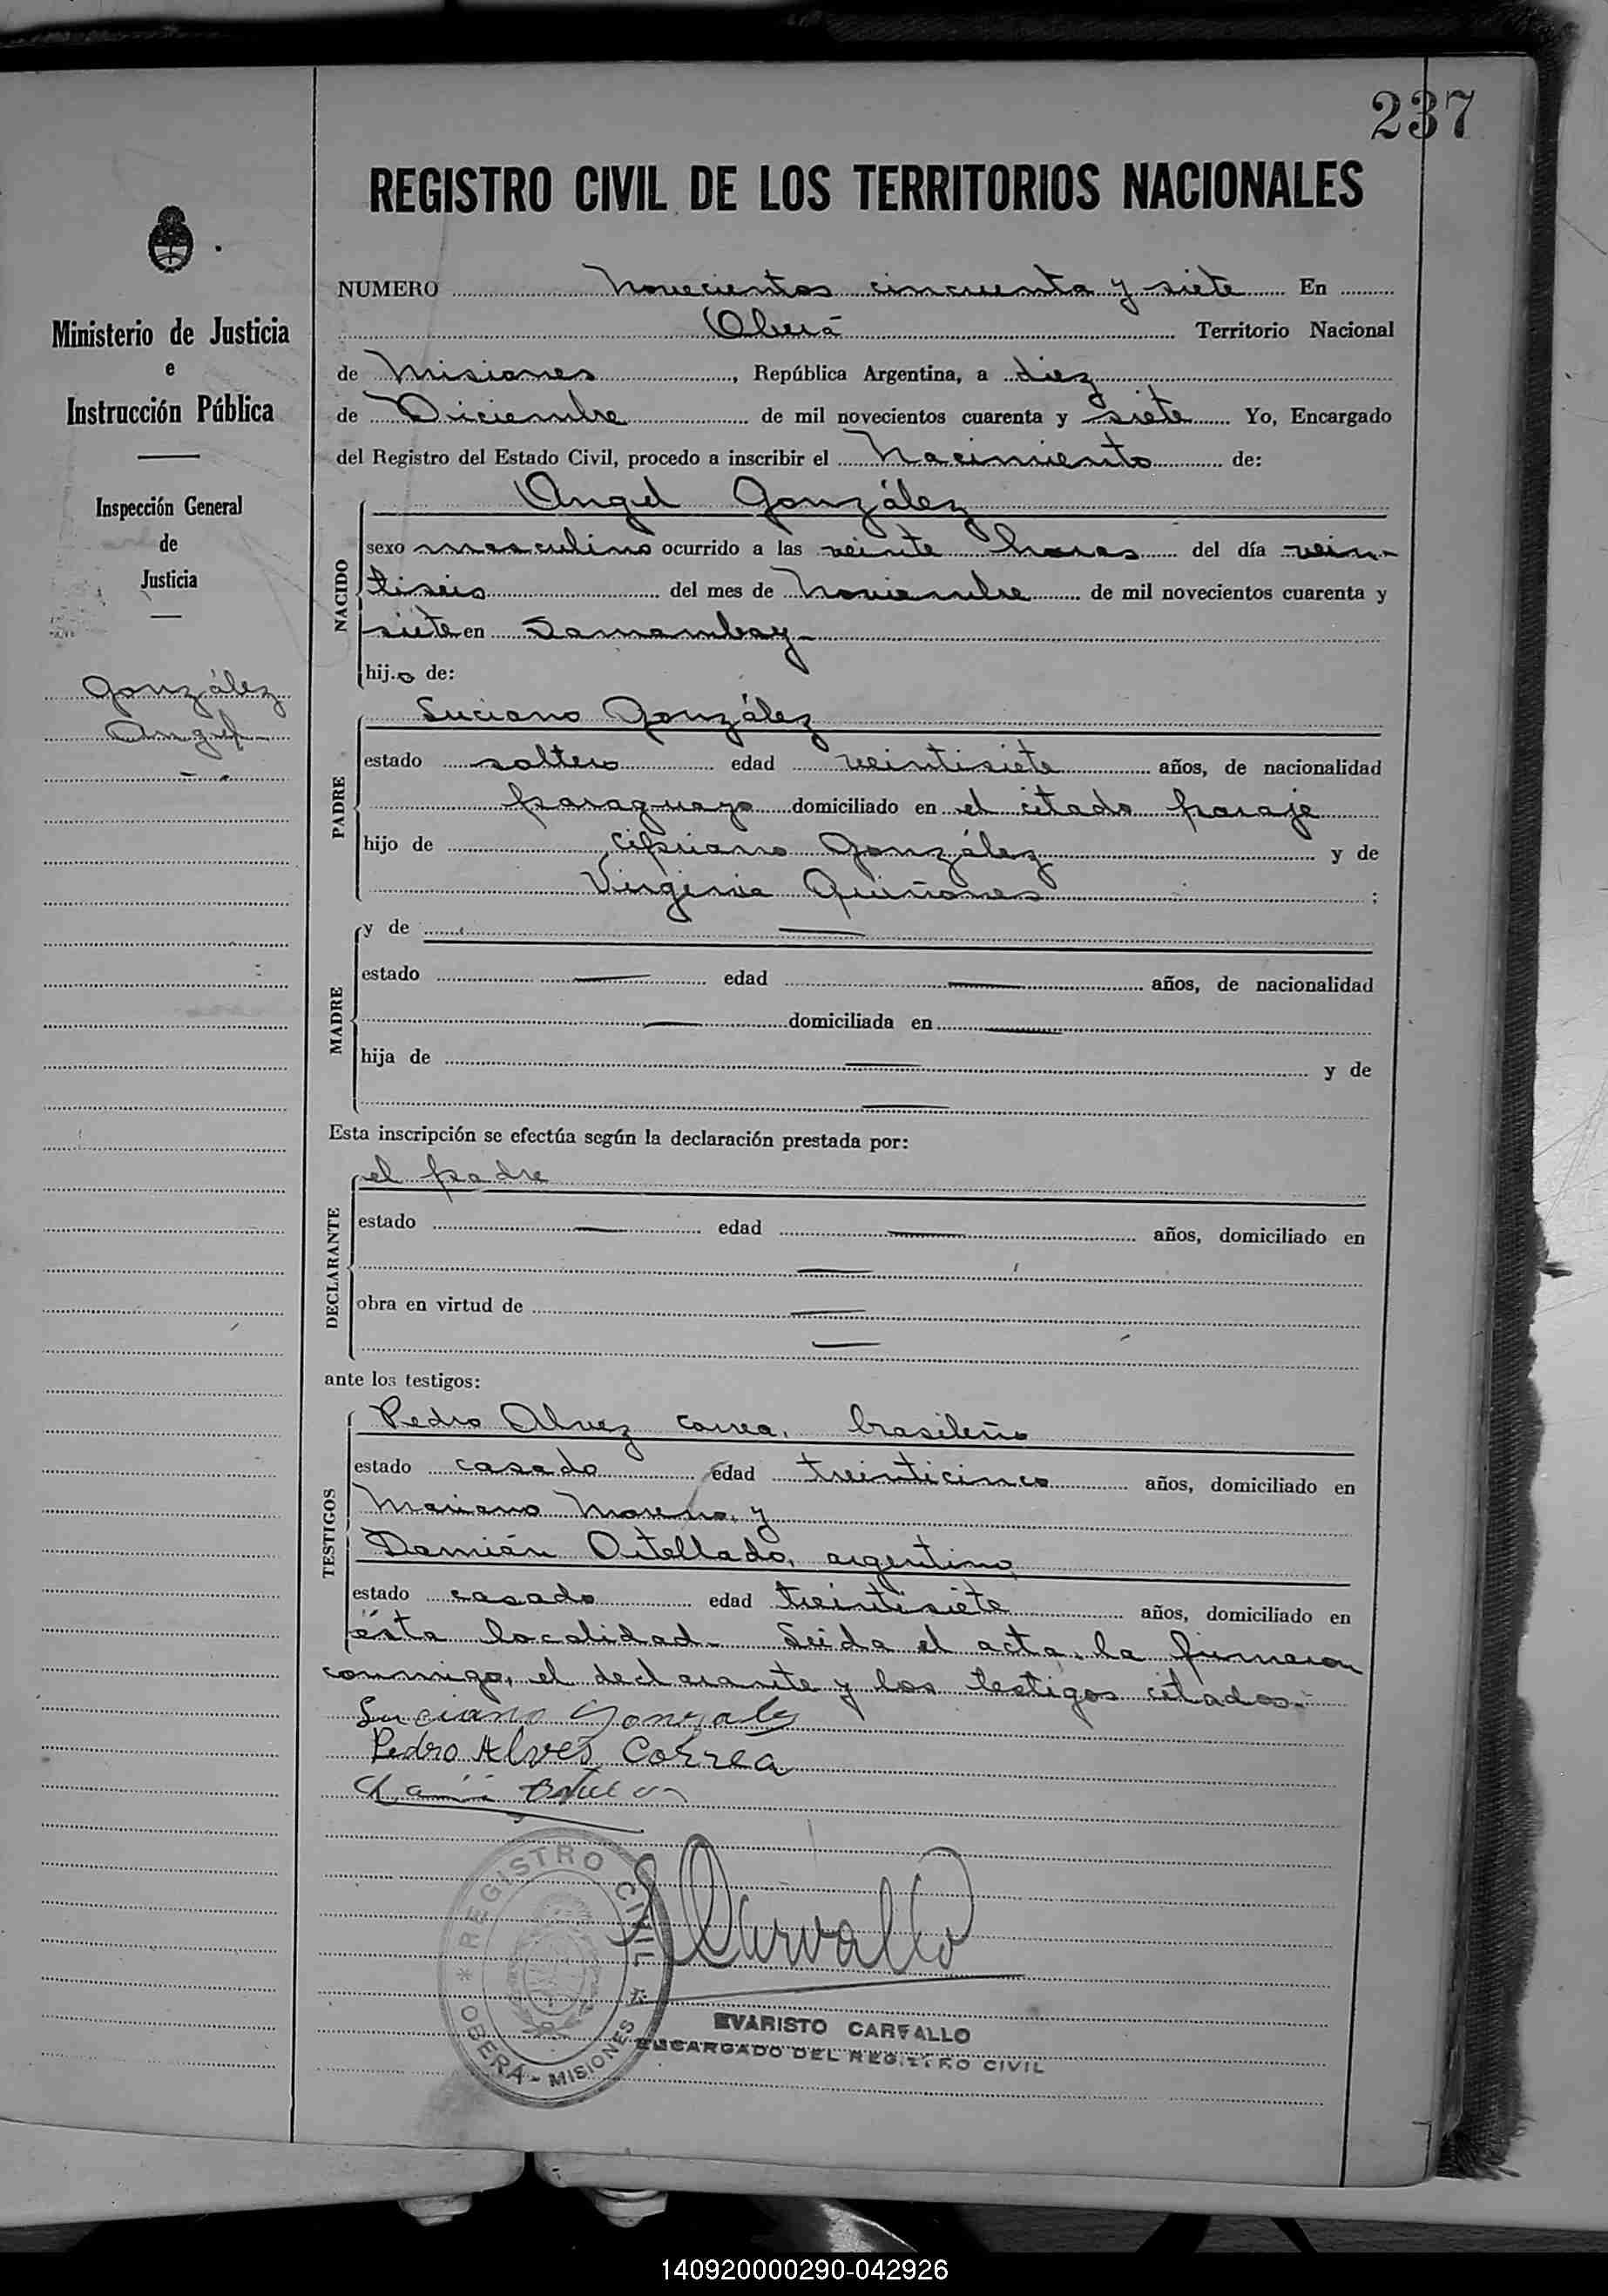 237
REGISTRO CIVIL DE LOS TERRITORIOS NACIONALES
Ministerio de Justicia
e
Instrucción Pública
Inspección General
de
Justicia
González
Angel
NUMERO Novecientos cincuenta y siete En
Oberá Territorio Nacional
de Misiones, República Argentina, a diez
de Diciembre de mil novecientos cuarenta y siete Yo, Encargado
del Registro del Estado Civil, procedo a inscribir el Nacimiento de:
NACIDO
Angel González
sexo masculino ocurrido a las veinte horas del día vein-
tiséis del mes de Noviembre de mil novecientos cuarenta y
siete en Samambay-
hijo de:
PADRE
Luciano González
estado soltero edad veintisiete años, de nacionalidad
paraguaya domiciliado en el citado paraje
hijo de Cipriano González y de
Virginia Quiñones ;
MADRE
y de —
estado — edad — años, de nacionalidad
— domiciliada en —
hija de — y de
—
Esta inscripción se efectúa según la declaración prestada por:
DECLARANTE
el padre
estado — edad — años, domiciliado en
—
obra en virtud de —
—
ante los testigos:
TESTIGOS
Pedro Alvez Correa, brasileño
estado casado edad treinticinco años, domiciliado en
Mariano Moreno, y
Damián Ortellado, argentino
estado casado edad treintisiete años, domiciliado en
ésta localidad- Leida el acta, la firmaron
conmigo, el declarante y los testigos citados.-
Luciano Gonzalez
Pedro Alves Correa
Carvallo
REGISTRO CIVIL
OBERÁ - MISIONES
EVARISTO CARVALLO
ENCARGADO DEL REGISTRO CIVIL
140920000290-042926